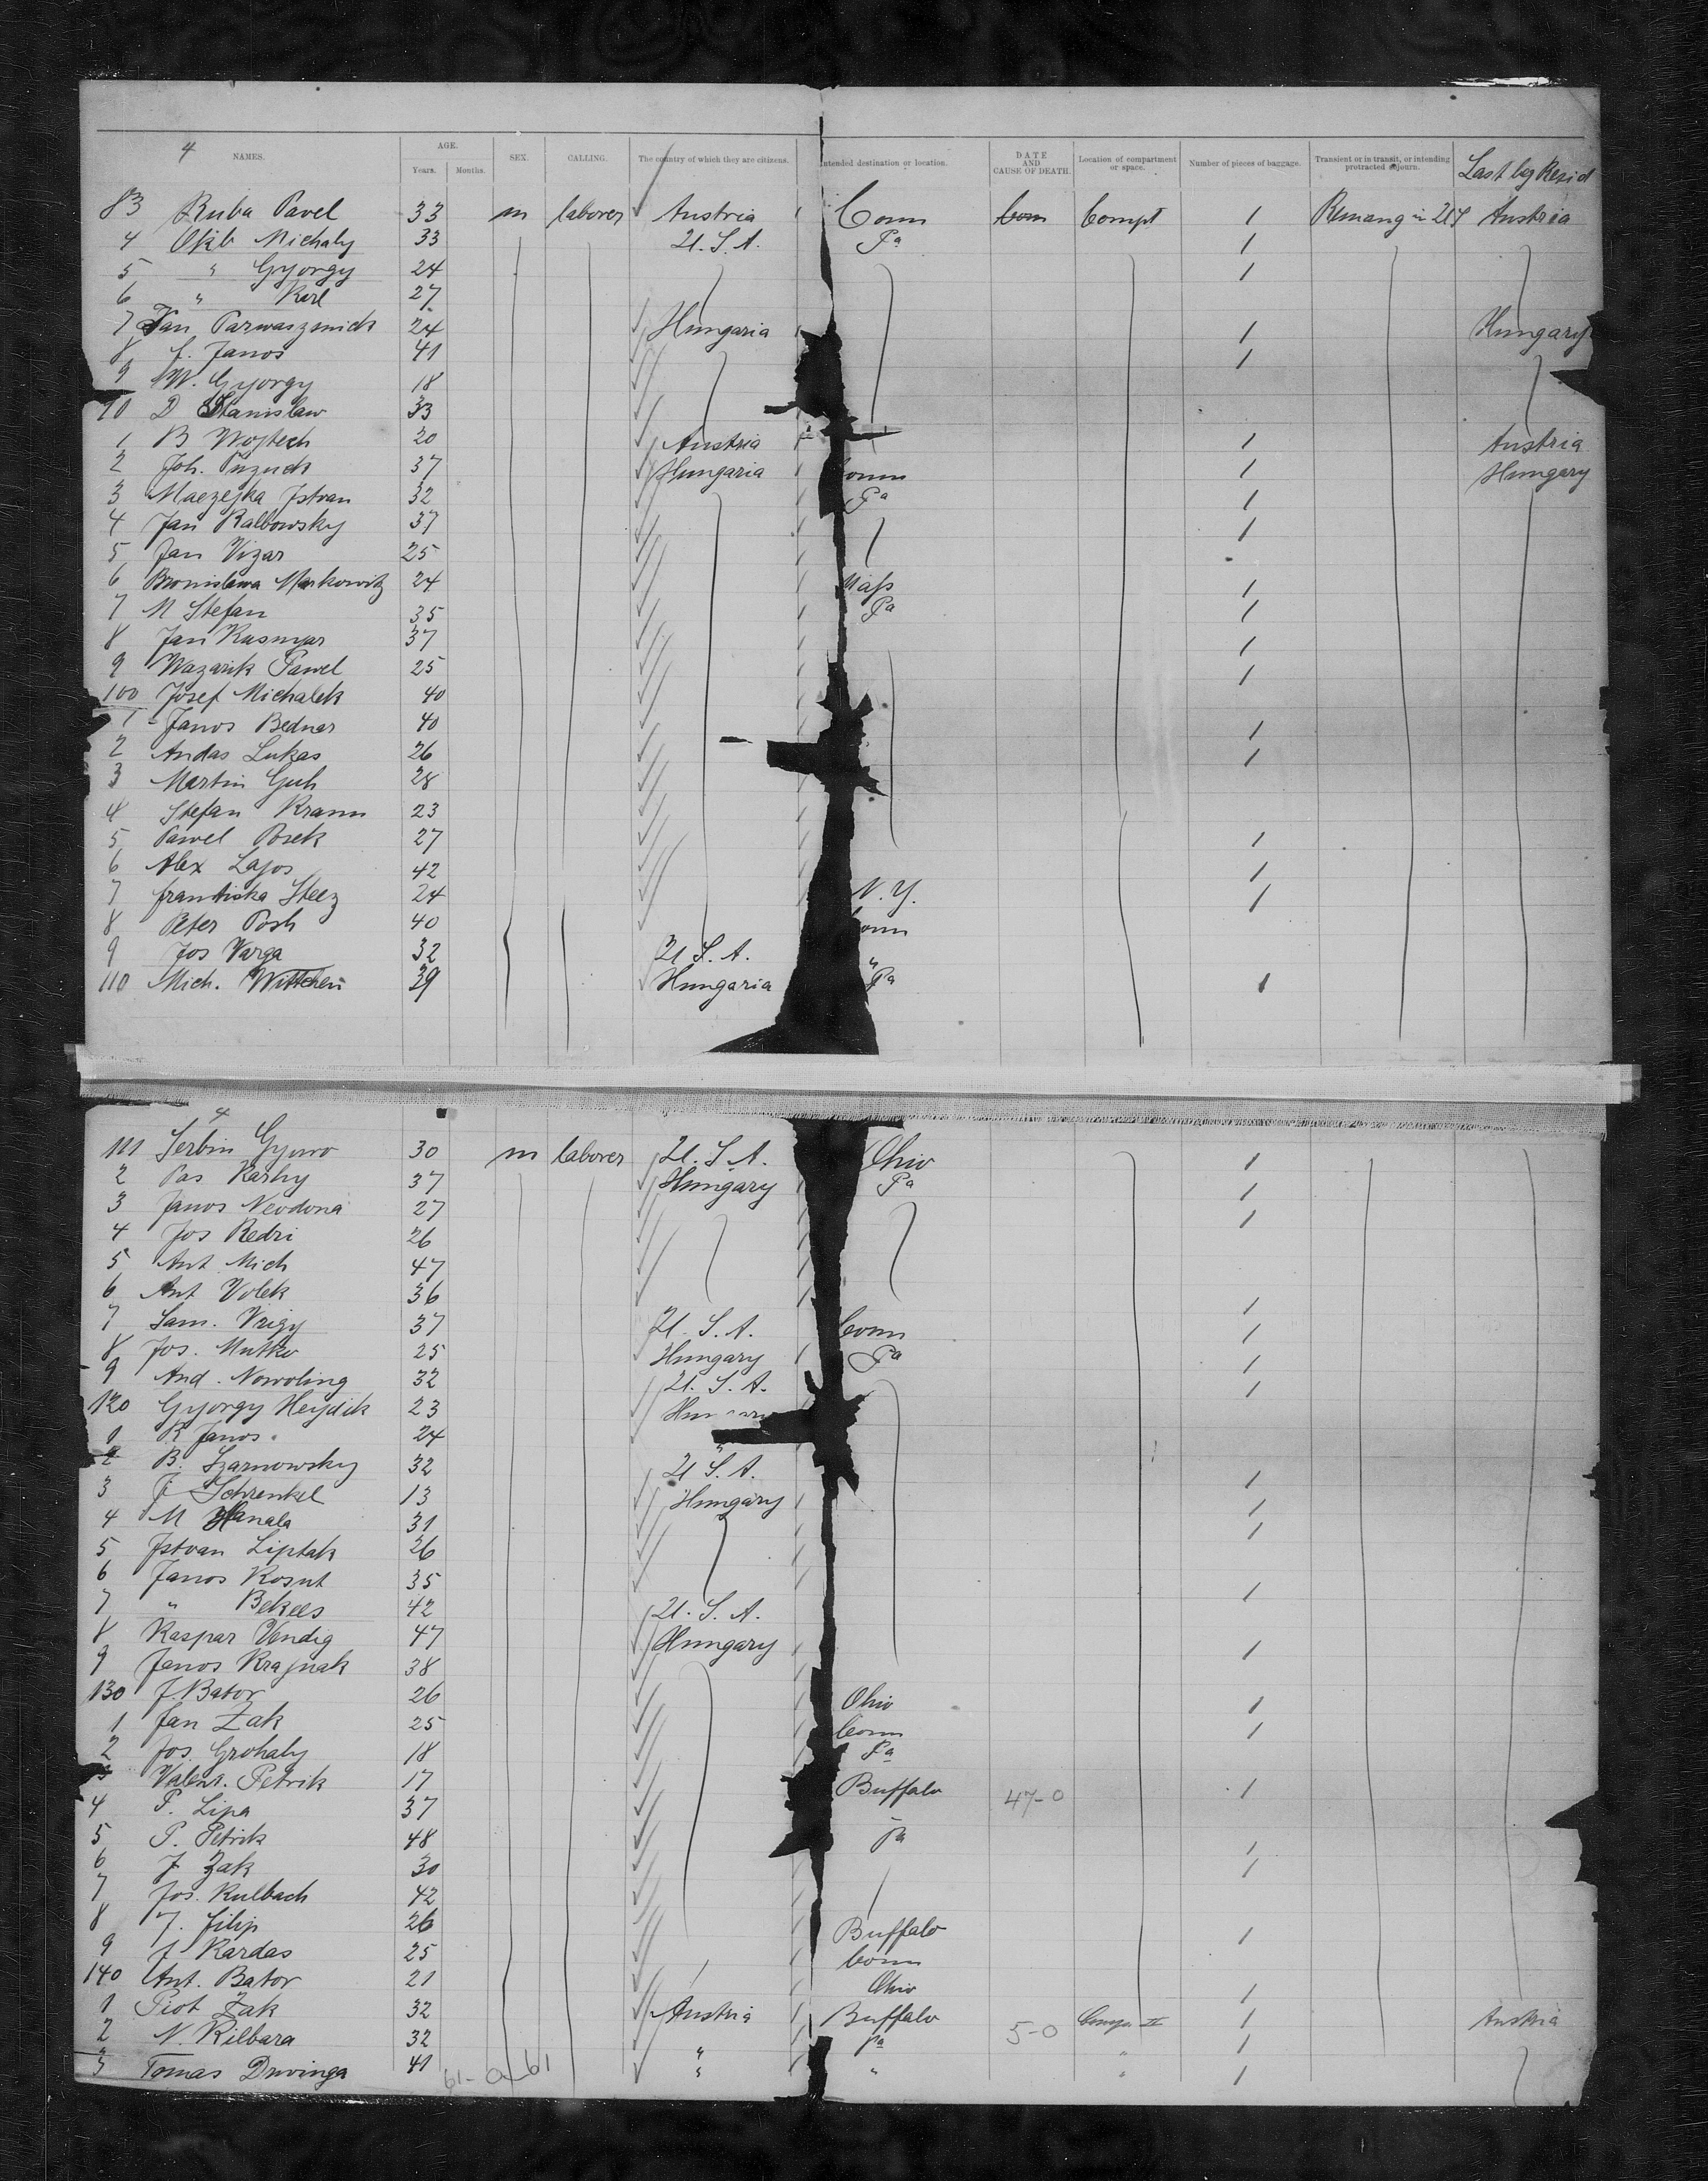 4
NAMES. AGE. Years. Months. SEX. CALLING. The country of which they are citizens. Intended destination or location. DATE AND CAUSE OF DEATH. Location of compartment or space. Number of pieces of baggage. Transient or in transit, or intending protracted sojourn. Last leg Resid
83 Ruba Pavel 33 m laborer Austria Conn Compt 1 Austria
4 Michaly 33 U.S.A. Pa 1
5 " Gyorgy 24 1
6 " Karl 27
7 Jan Parwaszmich 24 Hungaria 1 Hungary
8 J. Janos 41 1
9 W. Gyorgy 18
90 D Stanislaw 33
1 B Wojtech 20 Austria 1 Austria
2 Joh. 37 Hungaria onn 1 Hungary
3 Maezejka Jstvan 32 Pa 1
4 Jan Kalbowsky 37 1
5 Jan Vizar 25
6 Bronislawa Markowitz 24 Mass 1
7 M Stefan 35 Pa 1
8 Jan Kusmyar 37 1
9 Wazarik Pawel 25 1
100 Josef Michalek 40
1 Janos Bednar 40 1
2 Andas Lukas 26 1
3 Martin Guh 28
4 Stefan Krann 23
5 Pawel Bosek 27 1
6 Alex Lajos 42 1
7 Frantiska Steez 24 N.Y. 1
8 Peter Posh 40 onn
9 Jos Varga 32 U.S.A. "
110 Mich. 39 Hungaria Pa 1
4
111 Serbin 30 m laborer U.S.A. Ohio 1
2 Pas Karhy 37 Hungary Pa 1
3 Janos Nevdona 27 1
4 Jos Redri 26
5 Ant Mich 47
6 Ant Volek 36 1
7 Sam. Vrigy 37 U.S.A. Conn 1
8 Jos. Mutko 25 Hungary Pa 1
9 And. Nowoling 32 U.S.A. 1
120 Gyorgy Heydik 23
1 K Janos 24 "
2 B. Szarnowsky 32 U.S.A. 1
3 F Schrenkel 13 Hungary 1
4 M Hanala 31 1
5 Jstvan Liptak 26
6 Janos Kosut 35 1
7 " Bekees 42 U.S.A.
8 Kaspar Vendig 47 Hungary 1
9 Janos Krajnak 38
130 J. Bator 26 Ohio 1
1 Jan Zak 25 Conn 1
2 Jos. Grohaly 18 Pa
3 Valent. Petrik 17 Buffalo 47-0 1
4 P. Lipa 37
5 P. Petrik 48 Pa 1
6 J Zak 30 1
7 Jos. Kulbach 42
8 J. Filip 26 Buffalo 1
9 J Kardas 25 Conn
140 Ant. Bator 21 Ohio 1
1 Piot Zak 32 Austria Buffalo 5-0 II 1 Austria
2 N Kilbara 32 " Pa " 1
3 Tomas Drwinga 41 61-0-61 " " " 1